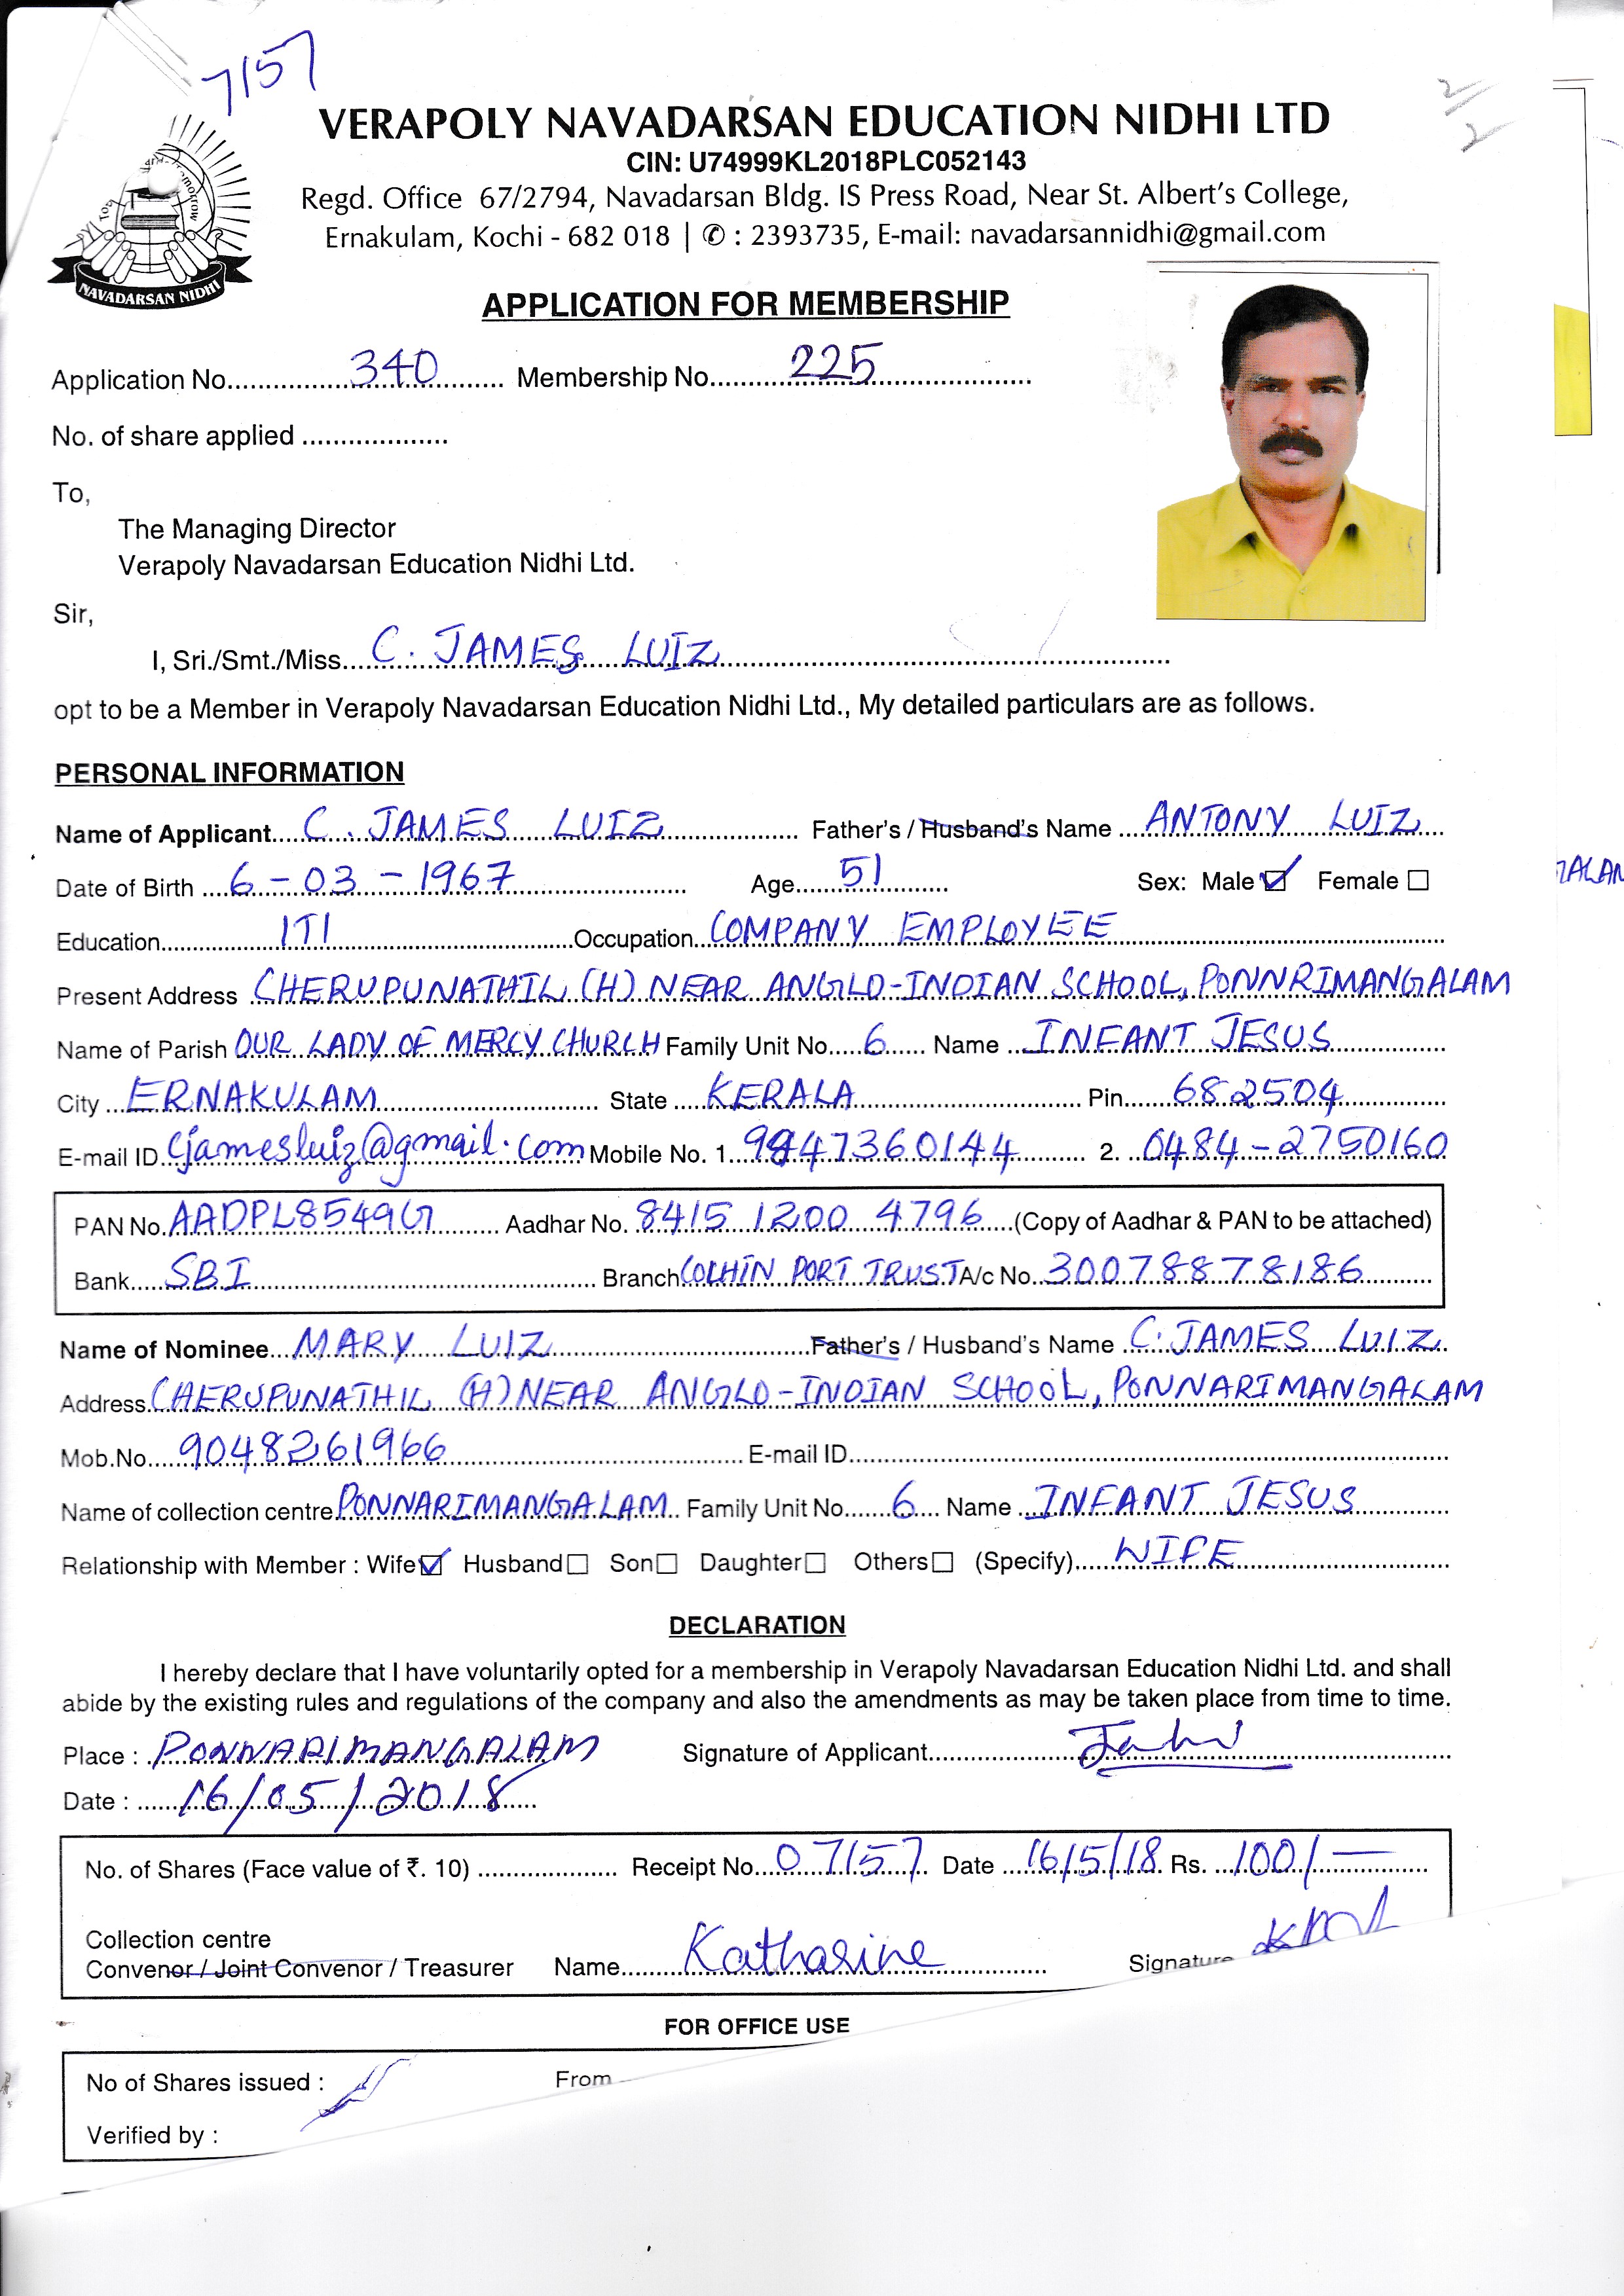 7157
VERAPOLY NAVADARSAN EDUCATION NIDHI LTD
CIN: U74999KL2018PLC052143
Regd. Office 67/2794, Navadarsan Bldg. IS Press Road, Near St. Albert's College,
Ernakulam, Kochi - 682 018 | ✆ : 2393735, E-mail: navadarsannidhi@gmail.com
NAVADARSAN NIDHI
APPLICATION FOR MEMBERSHIP
Application No. 340 Membership No. 225
No. of share applied
To,
The Managing Director
Verapoly Navadarsan Education Nidhi Ltd.
Sir,
I, Sri./Smt./Miss. C. JAMES LUIZ
opt to be a Member in Verapoly Navadarsan Education Nidhi Ltd., My detailed particulars are as follows.
PERSONAL INFORMATION
Name of Applicant C. JAMES LUIZ Father's / Husband's Name ANTONY LUIZ
Date of Birth 6 - 03 - 1967 Age 51 Sex: Male ☑ Female ☐
Education ITI Occupation COMPANY EMPLOYEE
Present Address CHERUPUNATHIL (H) NEAR ANGLO-INDIAN SCHOOL, PONNRIMANGALAM
Name of Parish OUR LADY OF MERCY CHURCH Family Unit No. 6 Name INFANT JESUS
City ERNAKULAM State KERALA Pin 682504
E-mail ID cjamesluiz@gmail.com Mobile No. 1 9947360144 2. 0484-2750160
PAN No. AADPL8549G Aadhar No. 8415 1200 4796 (Copy of Aadhar & PAN to be attached)
Bank SBI Branch COCHIN PORT TRUST A/c No. 30078878186
Name of Nominee MARY LUIZ Father's / Husband's Name C. JAMES LUIZ
Address CHERUPUNATHIL (H) NEAR ANGLO-INDIAN SCHOOL, PONNARIMANGALAM
Mob.No. 9048261966 E-mail ID
Name of collection centre PONNARIMANGALAM Family Unit No. 6 Name INFANT JESUS
Relationship with Member : Wife ☑ Husband ☐ Son ☐ Daughter ☐ Others ☐ (Specify) WIFE
DECLARATION
I hereby declare that I have voluntarily opted for a membership in Verapoly Navadarsan Education Nidhi Ltd. and shall
abide by the existing rules and regulations of the company and also the amendments as may be taken place from time to time.
Place : PONNARIMANGALAM Signature of Applicant
Date : 16/05/2018
No. of Shares (Face value of ₹. 10) Receipt No. 07157 Date 16/5/18 Rs. 100/-
Collection centre
Convenor / Joint Convenor / Treasurer Name Katharine Signature
FOR OFFICE USE
No of Shares issued : From
Verified by :